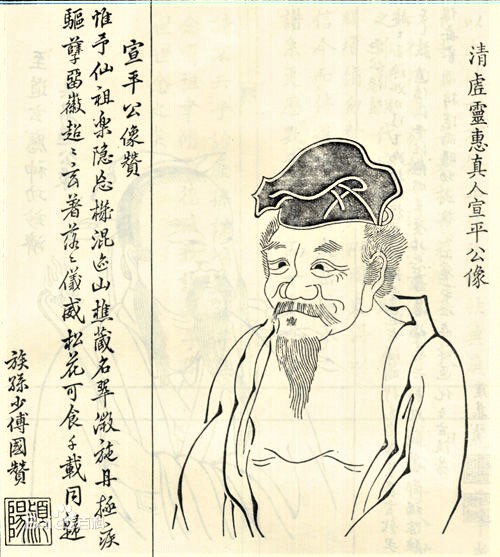 清虛靈惠真人宣平公像
宣平公像贊
惟予仙祖楽隐忘機混迹山樵藏名翠微施丹極疾
驅孽留徽超〻玄著落〻儀威松花可食千載同歸
族孫少傅國贊